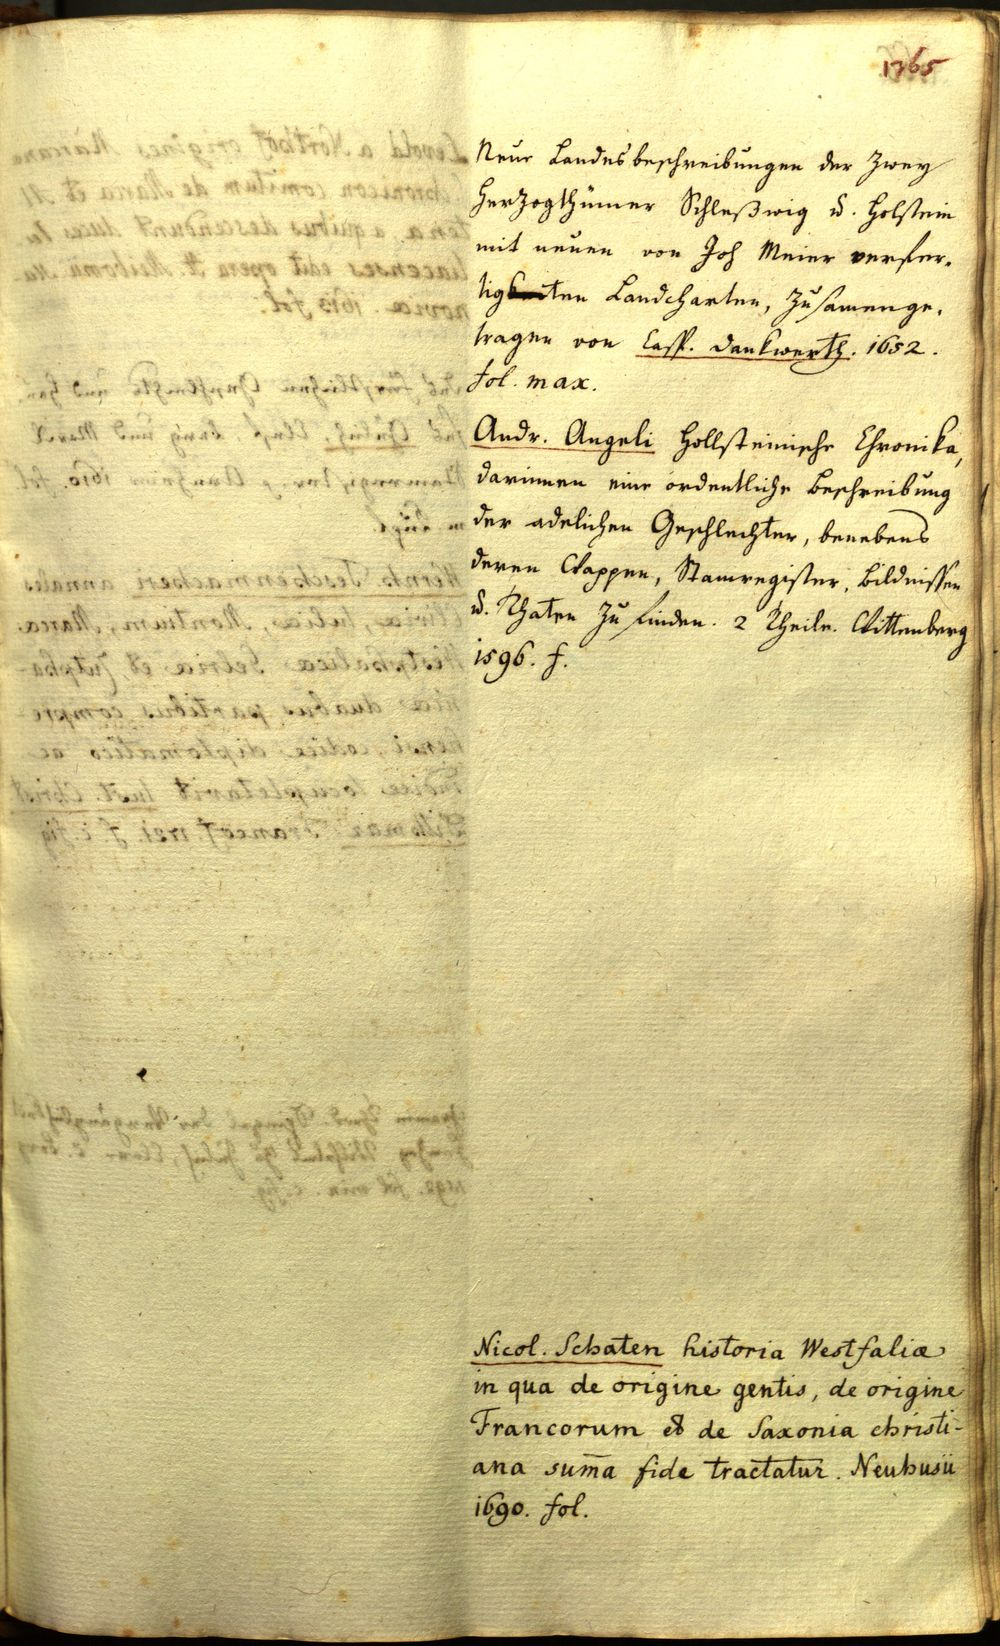 1365
Neue Landesbeschreibungen der Zwey
Herzogthümer Schleßwig u. Holstein
mit neuen von Joh Meier verfer-
tigten Landcharten, Zusamenge-
tragen von Casp. Dankwerth. 1652.
fol. max.
Andr. Angeli Hollsteinische Chronika,
darinnen eine ordentliche Beschreibung
der adelichen Geschlechter, benebens
deren Wappen, Stamregister, Bildnissen
u. Thaten Zu finden. 2 Theile. Wittenberg
1596. f.
Nicol. Schaten historia Westfaliæ
in qua de origine gentis, de origine
Francorum et de Saxonia christi-
ana sum̄a fide tractatur. Neuhusii
1690. fol.